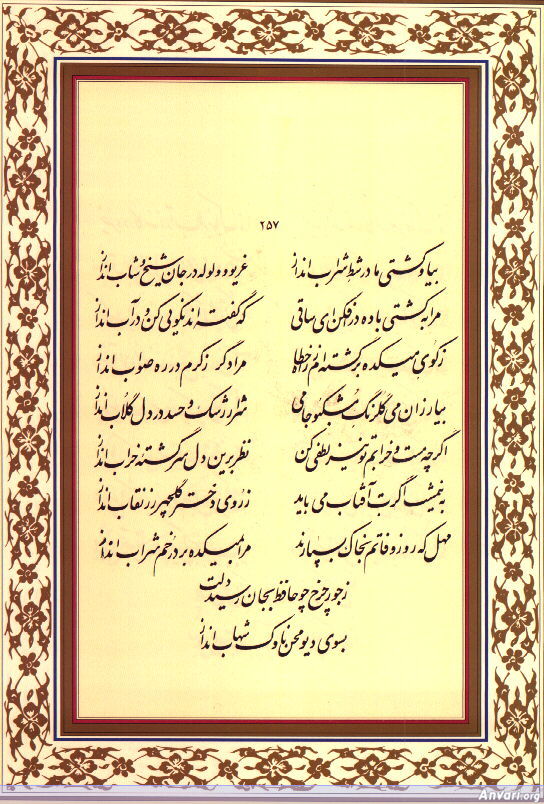 ۲۵۷
بیا و کشتی ما در شط شراب انداز غریو و ولوله در جان شیخ و شاب انداز
مرا به کشتی باده در افکن ای ساقی که گفته‌اند نکویی کن و در آب انداز
ز کوی میکده برگشته‌ام ز راه خطا مرا دگر ز کرم در ره صواب انداز
بیار زان می گلرنگ مشکبو جامی شرار رشک و حسد در دل گلاب انداز
اگرچه مست و خرابم تو نیز لطفی کن نظر برین دل سرگشته خراب انداز
به نیمشب اگرت آفتاب می باید ز روی دختر گلچهر رز نقاب انداز
مهل که روز وفاتم بخاک بسپارند مرا بمیکده بر در خم شراب انداز
ز جور چرخ چو حافظ بجان رسید دلت
بسوی دیو محن ناوک شهاب انداز
Anvari.org